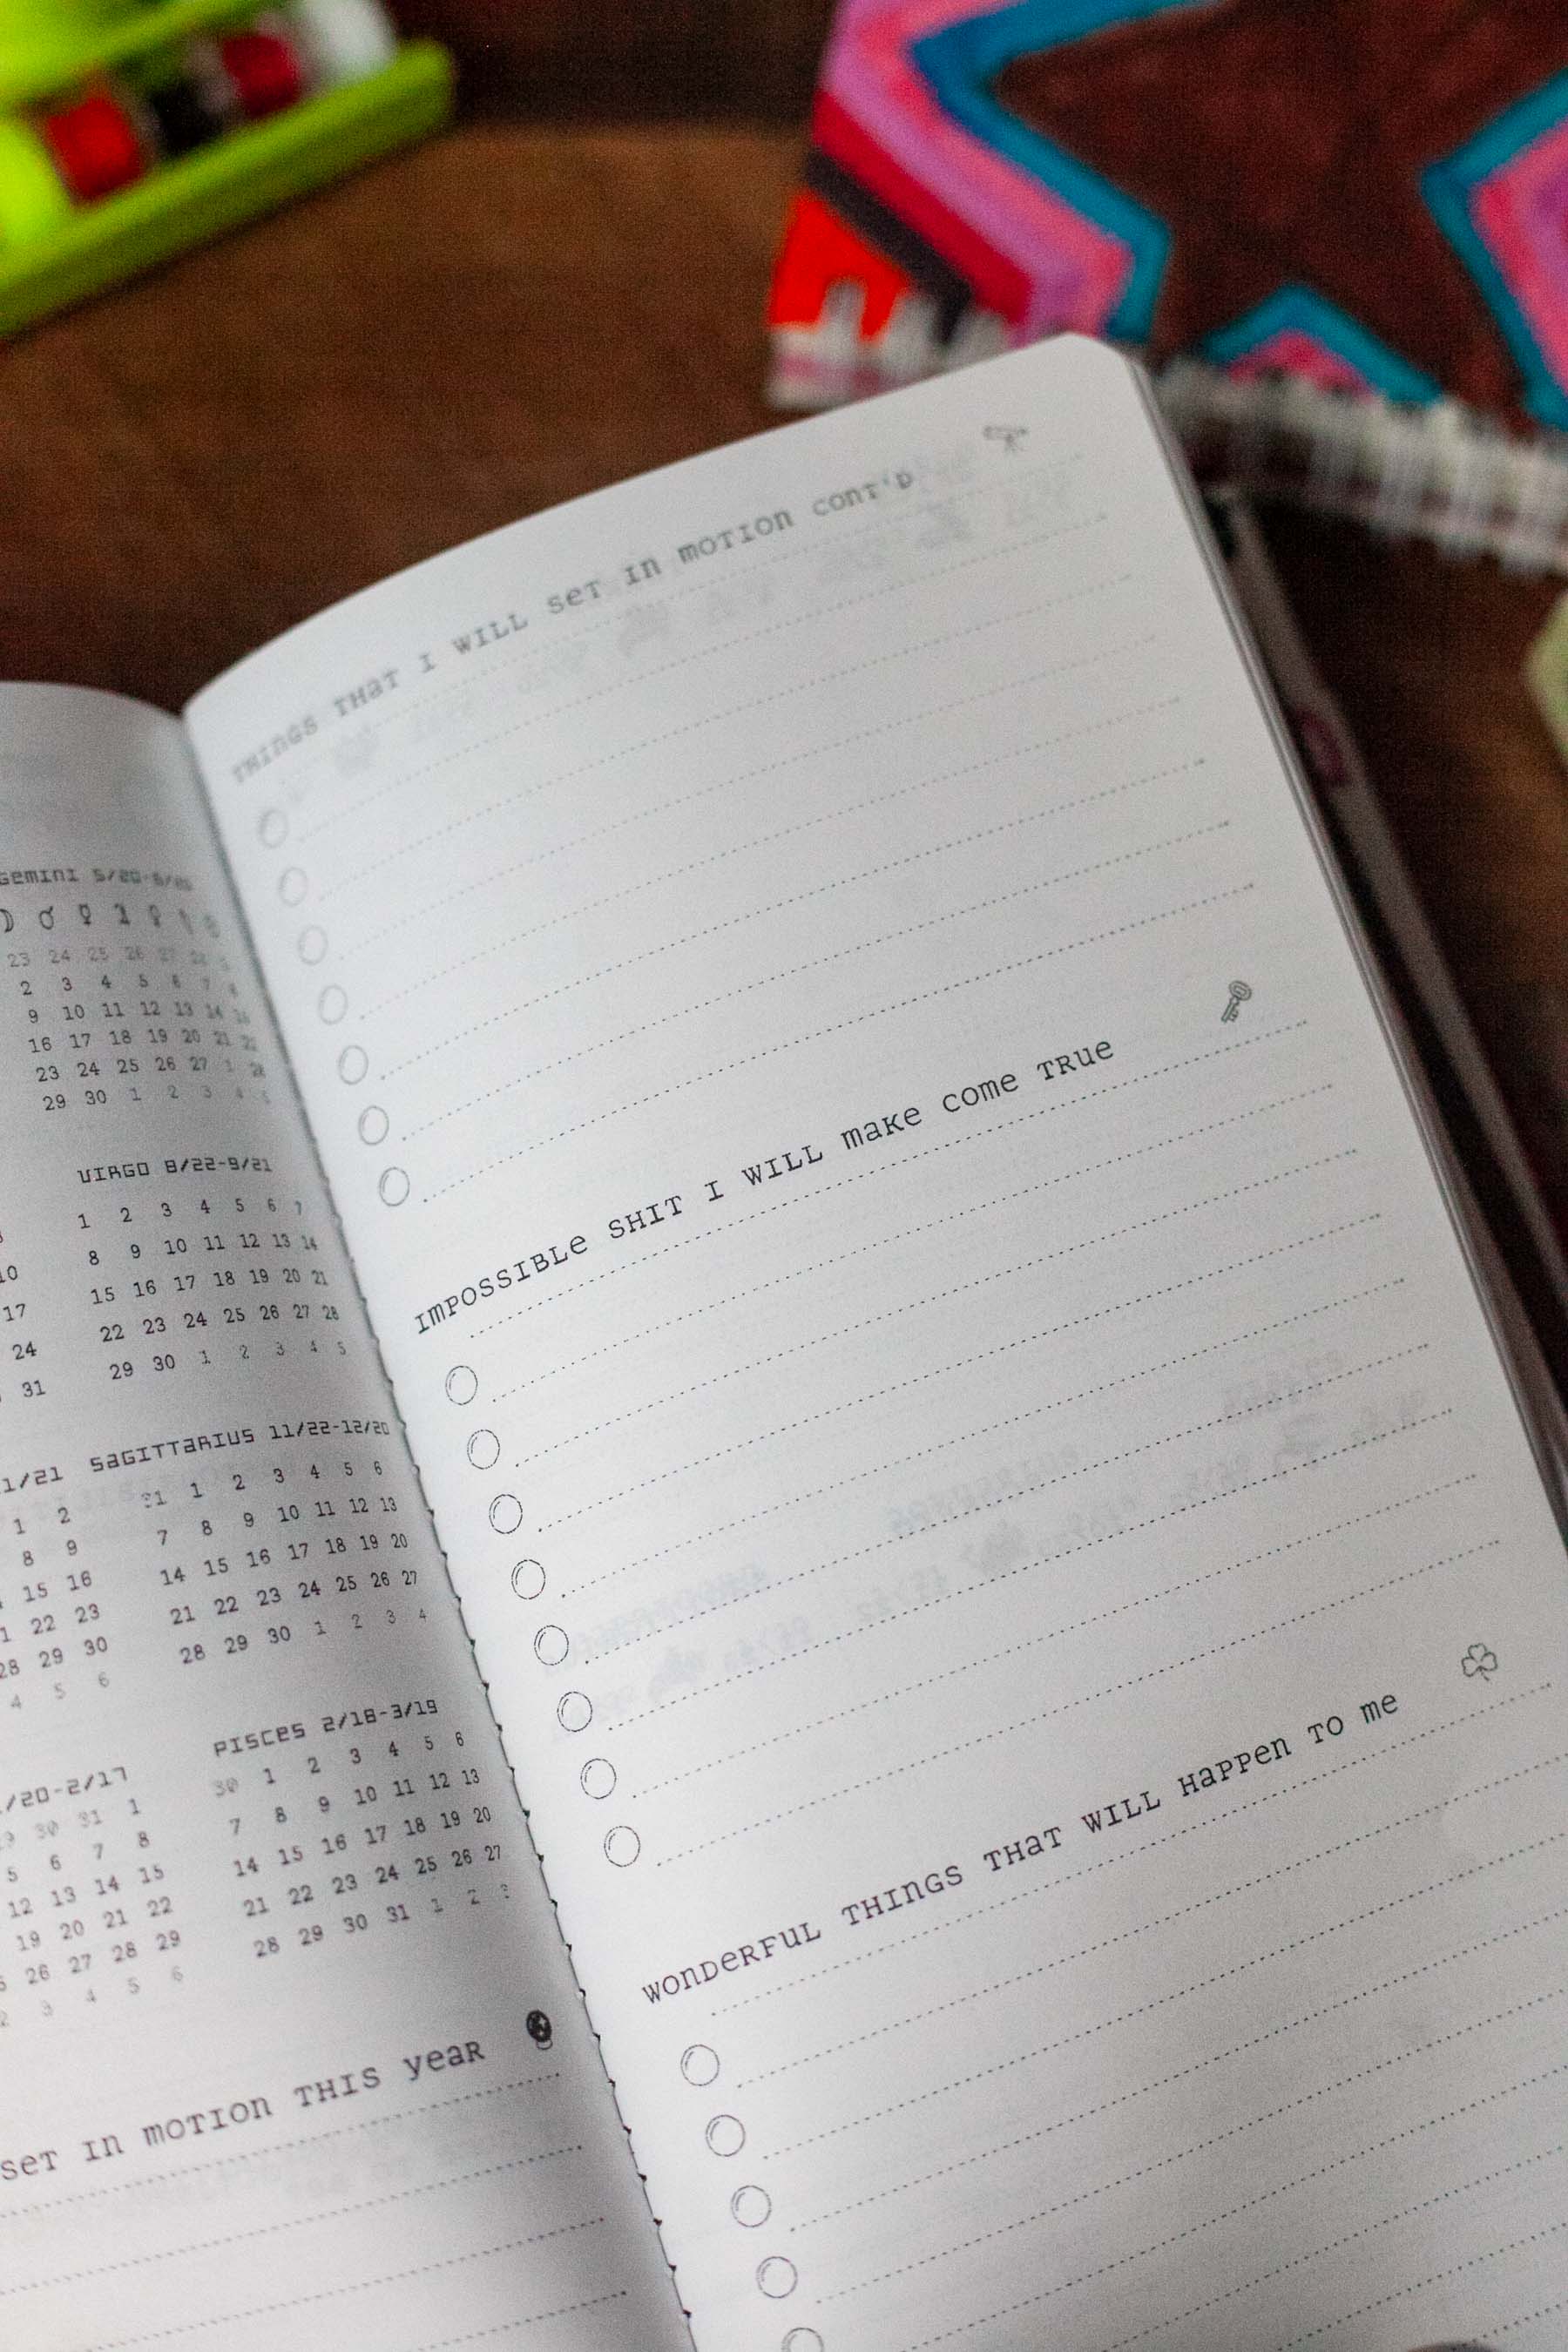 Gemini 5/20-6/
23 24 25 26 27 28
2 3 4 5 6 7 8
9 10 11 12 13 14 15
16 17 18 19 20 21 22
23 24 25 26 27 1 28
29 30 1 2 3 4 5
10
17
24
31
VIRGO 8/22-9/21
1 2 3 4 5 6 7
8 9 10 11 12 13 14
15 16 17 18 19 20 21
22 23 24 25 26 27 28
29 30 1 2 3 4 5
1/21
1 2
8 9
15 16
22 23
28 29 30
4 5 6
SaGITTaRIUS 11/22-12/20
31 1 2 3 4 5 6
7 8 9 10 11 12 13
14 15 16 17 18 19 20
21 22 23 24 25 26 27
28 29 30 1 2 3 4
/20-2/17
29 30 31 1
5 6 7 8
12 13 14 15
19 20 21 22
26 27 28 29
2 3 4 5 6
PISCes 2/18-3/19
30 1 2 3 4 5 6
7 8 9 10 11 12 13
14 15 16 17 18 19 20
21 22 23 24 25 26 27
28 29 30 31 1 2 3
seT In mOTIOn THIS yeaR
THInGS THaT I WILL seT In mOTIOn conT'D
ImPOSSIBLe SHIT I WILL maKe come TRue
WOnDeRFuL THInGS THaT WILL HaPPen TO me